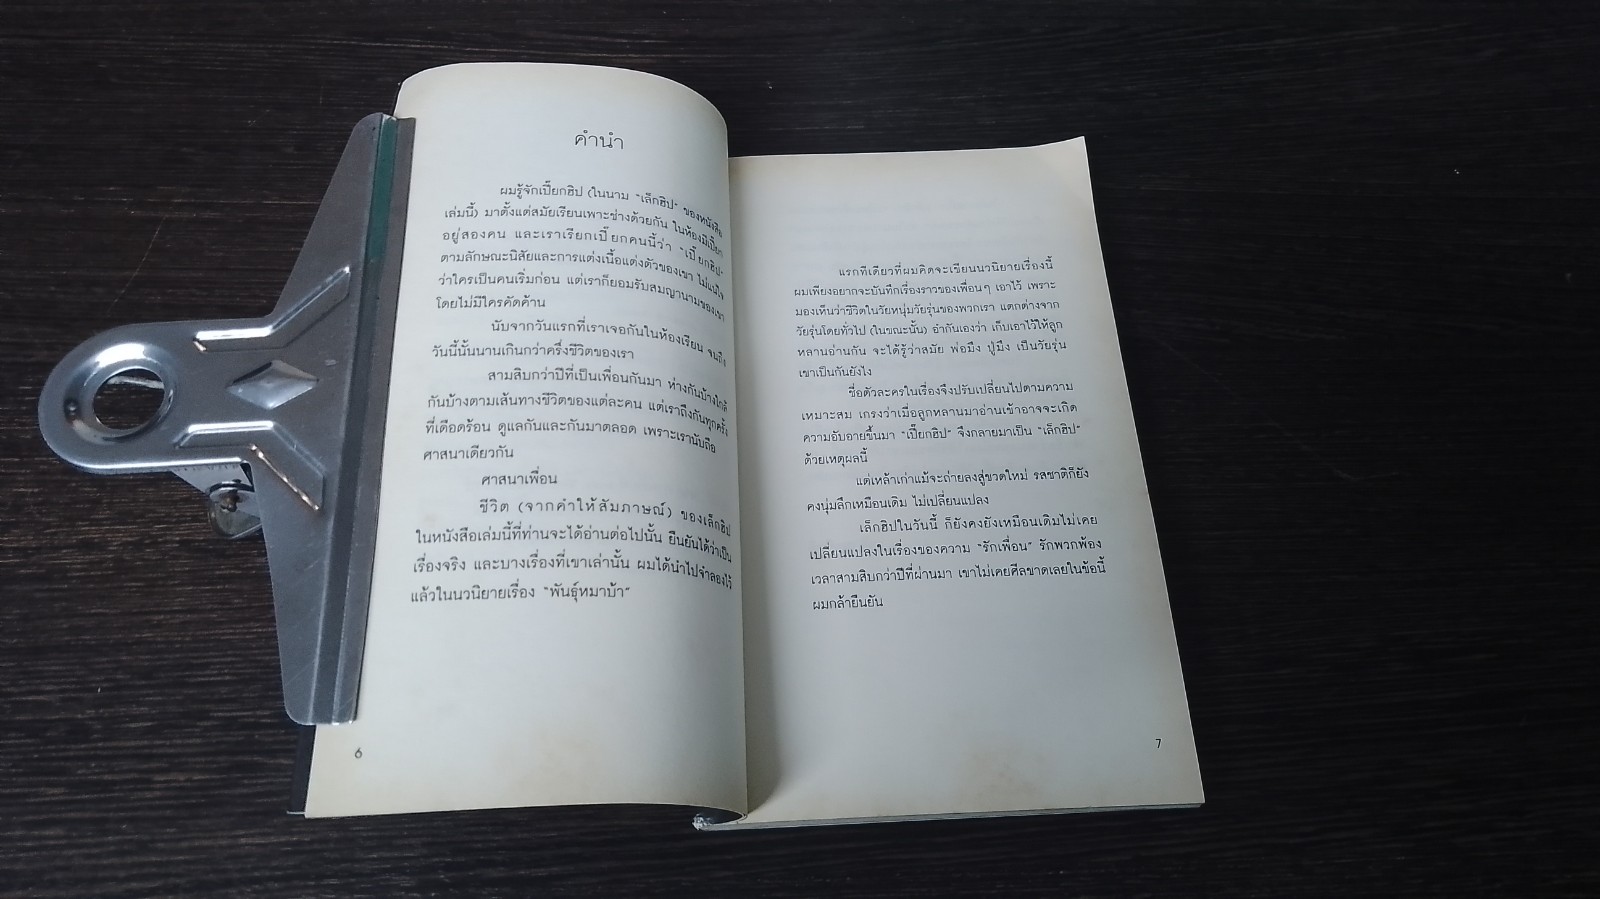 คำนำ
ผมรู้จักเปี๊ยกฮิป (ในนาม “เล็กฮิป” ของหนังสือ
เล่มนี้) มาตั้งแต่สมัยเรียนเพาะช่างด้วยกัน ในห้องมีเปี๊ยก
อยู่สองคน และเราเรียกเปี๊ยกคนนี้ว่า “เปี๊ยกฮิป”
ตามลักษณะนิสัยและการแต่งเนื้อแต่งตัวของเขา ไม่แน่ใจ
ว่าใครเป็นคนเริ่มก่อน แต่เราก็ยอมรับสมญานามของเขา
โดยไม่มีใครคัดค้าน
นับจากวันแรกที่เราเจอกันในห้องเรียน จนถึง
วันนี้นั้นนานเกินกว่าครึ่งชีวิตของเรา
สามสิบกว่าปีที่เป็นเพื่อนกันมา ห่างกันบ้างใกล้
กันบ้างตามเส้นทางชีวิตของแต่ละคน แต่เราถึงกันทุกครั้ง
ที่เดือดร้อน ดูแลกันและกันมาตลอด เพราะเรานับถือ
ศาสนาเดียวกัน
ศาสนาเพื่อน
ชีวิต (จากคำให้สัมภาษณ์) ของเล็กฮิป
ในหนังสือเล่มนี้ที่ท่านจะได้อ่านต่อไปนั้น ยืนยันได้ว่าเป็น
เรื่องจริง และบางเรื่องที่เขาเล่านั้น ผมได้นำไปจำลองไว้
แล้วในนวนิยายเรื่อง “พันธุ์หมาบ้า”
6
แรกทีเดียวที่ผมคิดจะเขียนนวนิยายเรื่องนี้
ผมเพียงอยากจะบันทึกเรื่องราวของเพื่อนๆ เอาไว้ เพราะ
มองเห็นว่าชีวิตในวัยหนุ่มวัยรุ่นของพวกเรา แตกต่างจาก
วัยรุ่นโดยทั่วไป (ในขณะนั้น) อำกันเองว่า เก็บเอาไว้ให้ลูก
หลานอ่านกัน จะได้รู้ว่าสมัย พ่อมึง ปู่มึง เป็นวัยรุ่น
เขาเป็นกันยังไง
ชื่อตัวละครในเรื่องจึงปรับเปลี่ยนไปตามความ
เหมาะสม เกรงว่าเมื่อลูกหลานมาอ่านเข้าอาจจะเกิด
ความอับอายขึ้นมา “เปี๊ยกฮิป” จึงกลายมาเป็น “เล็กฮิป”
ด้วยเหตุผลนี้
แต่เหล้าเก่าแม้จะถ่ายลงสู่ขวดใหม่ รสชาติก็ยัง
คงนุ่มลึกเหมือนเดิม ไม่เปลี่ยนแปลง
เล็กฮิปในวันนี้ ก็ยังคงยังเหมือนเดิมไม่เคย
เปลี่ยนแปลงในเรื่องของความ “รักเพื่อน” รักพวกพ้อง
เวลาสามสิบกว่าปีที่ผ่านมา เขาไม่เคยศีลขาดเลยในข้อนี้
ผมกล้ายืนยัน
7